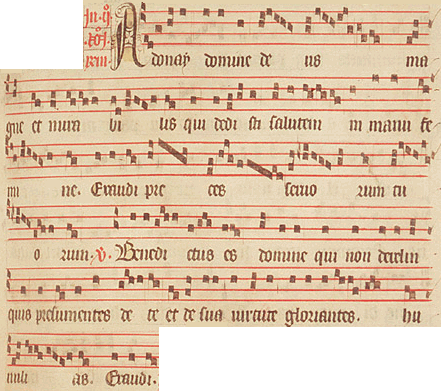 Adonay domine de us ma
gne et mira bi lis qui dedi sti salutem in manu fe
mi ne. Exaudi pre ces servo rum tu
o rum. v. Benedi ctus es domine qui non derelin
quis presumentes de te et de sua virtute gloriantes. hu
mili as. Exaudi.